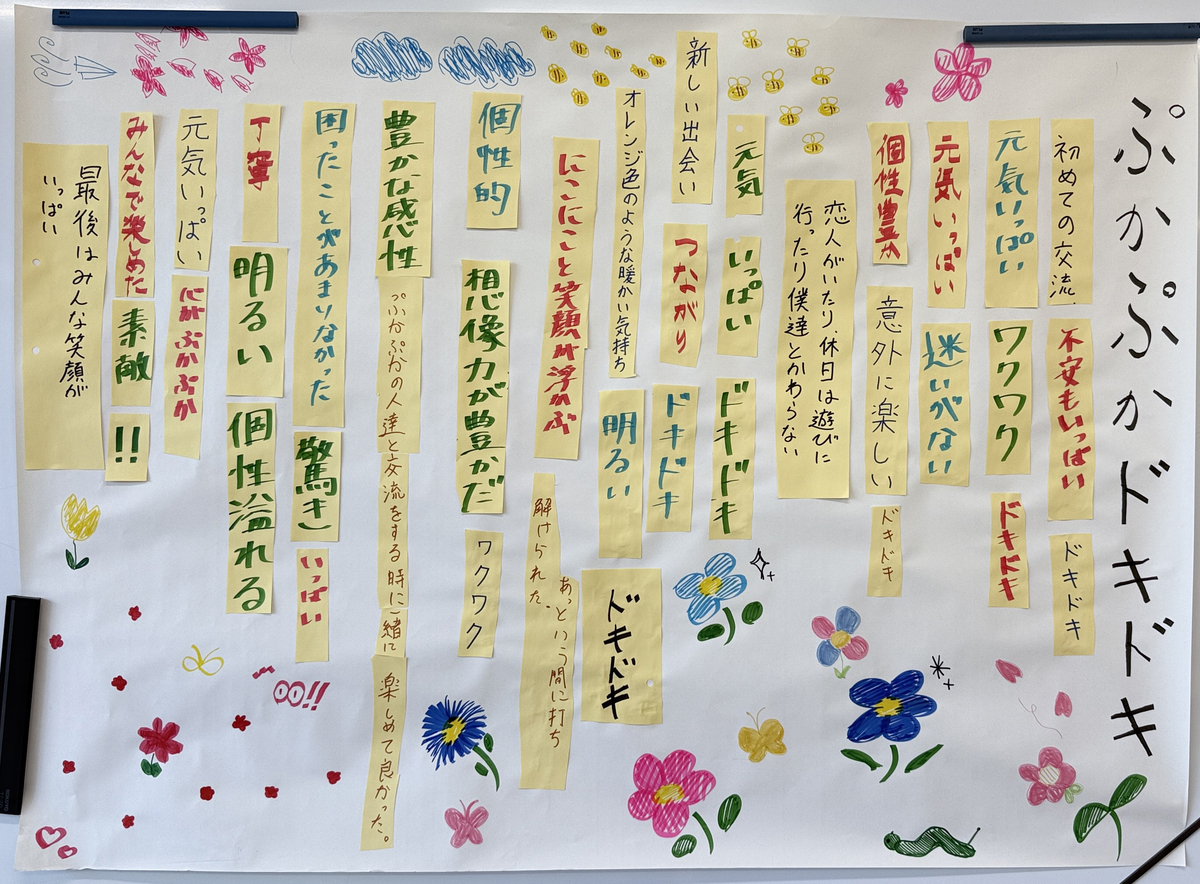 ぷかぷかドキドキ
初めての交流、
不安もいっぱい
ドキドキ
元気いっぱい
ワクワク
ドキドキ
元気いっぱい
迷いがない
個性豊か
意外に楽しい
ドキドキ
恋人がいたり、休日は遊びに
行ったり僕達とかわらない
元気
いっぱい
ドキドキ
新しい出会い
つながり
ドキドキ
オレンジ色のような暖かい気持ち
明るい
ドキドキ
にこにこと笑顔が浮かぶ
あっという間に打ち
解けられた
個性的
想像力が豊かだ
ワクワク
豊かな感性
ぷかぷかの人達と交流をする時に
一緒に
楽しめて良かった。
困ったことがあまりなかった
驚き
いっぱい
丁寧
明るい
個性溢れる
元気いっぱい
心がぷかぷか
みんなで楽しめた
素敵
!!
最後はみんな笑顔が
いっぱい